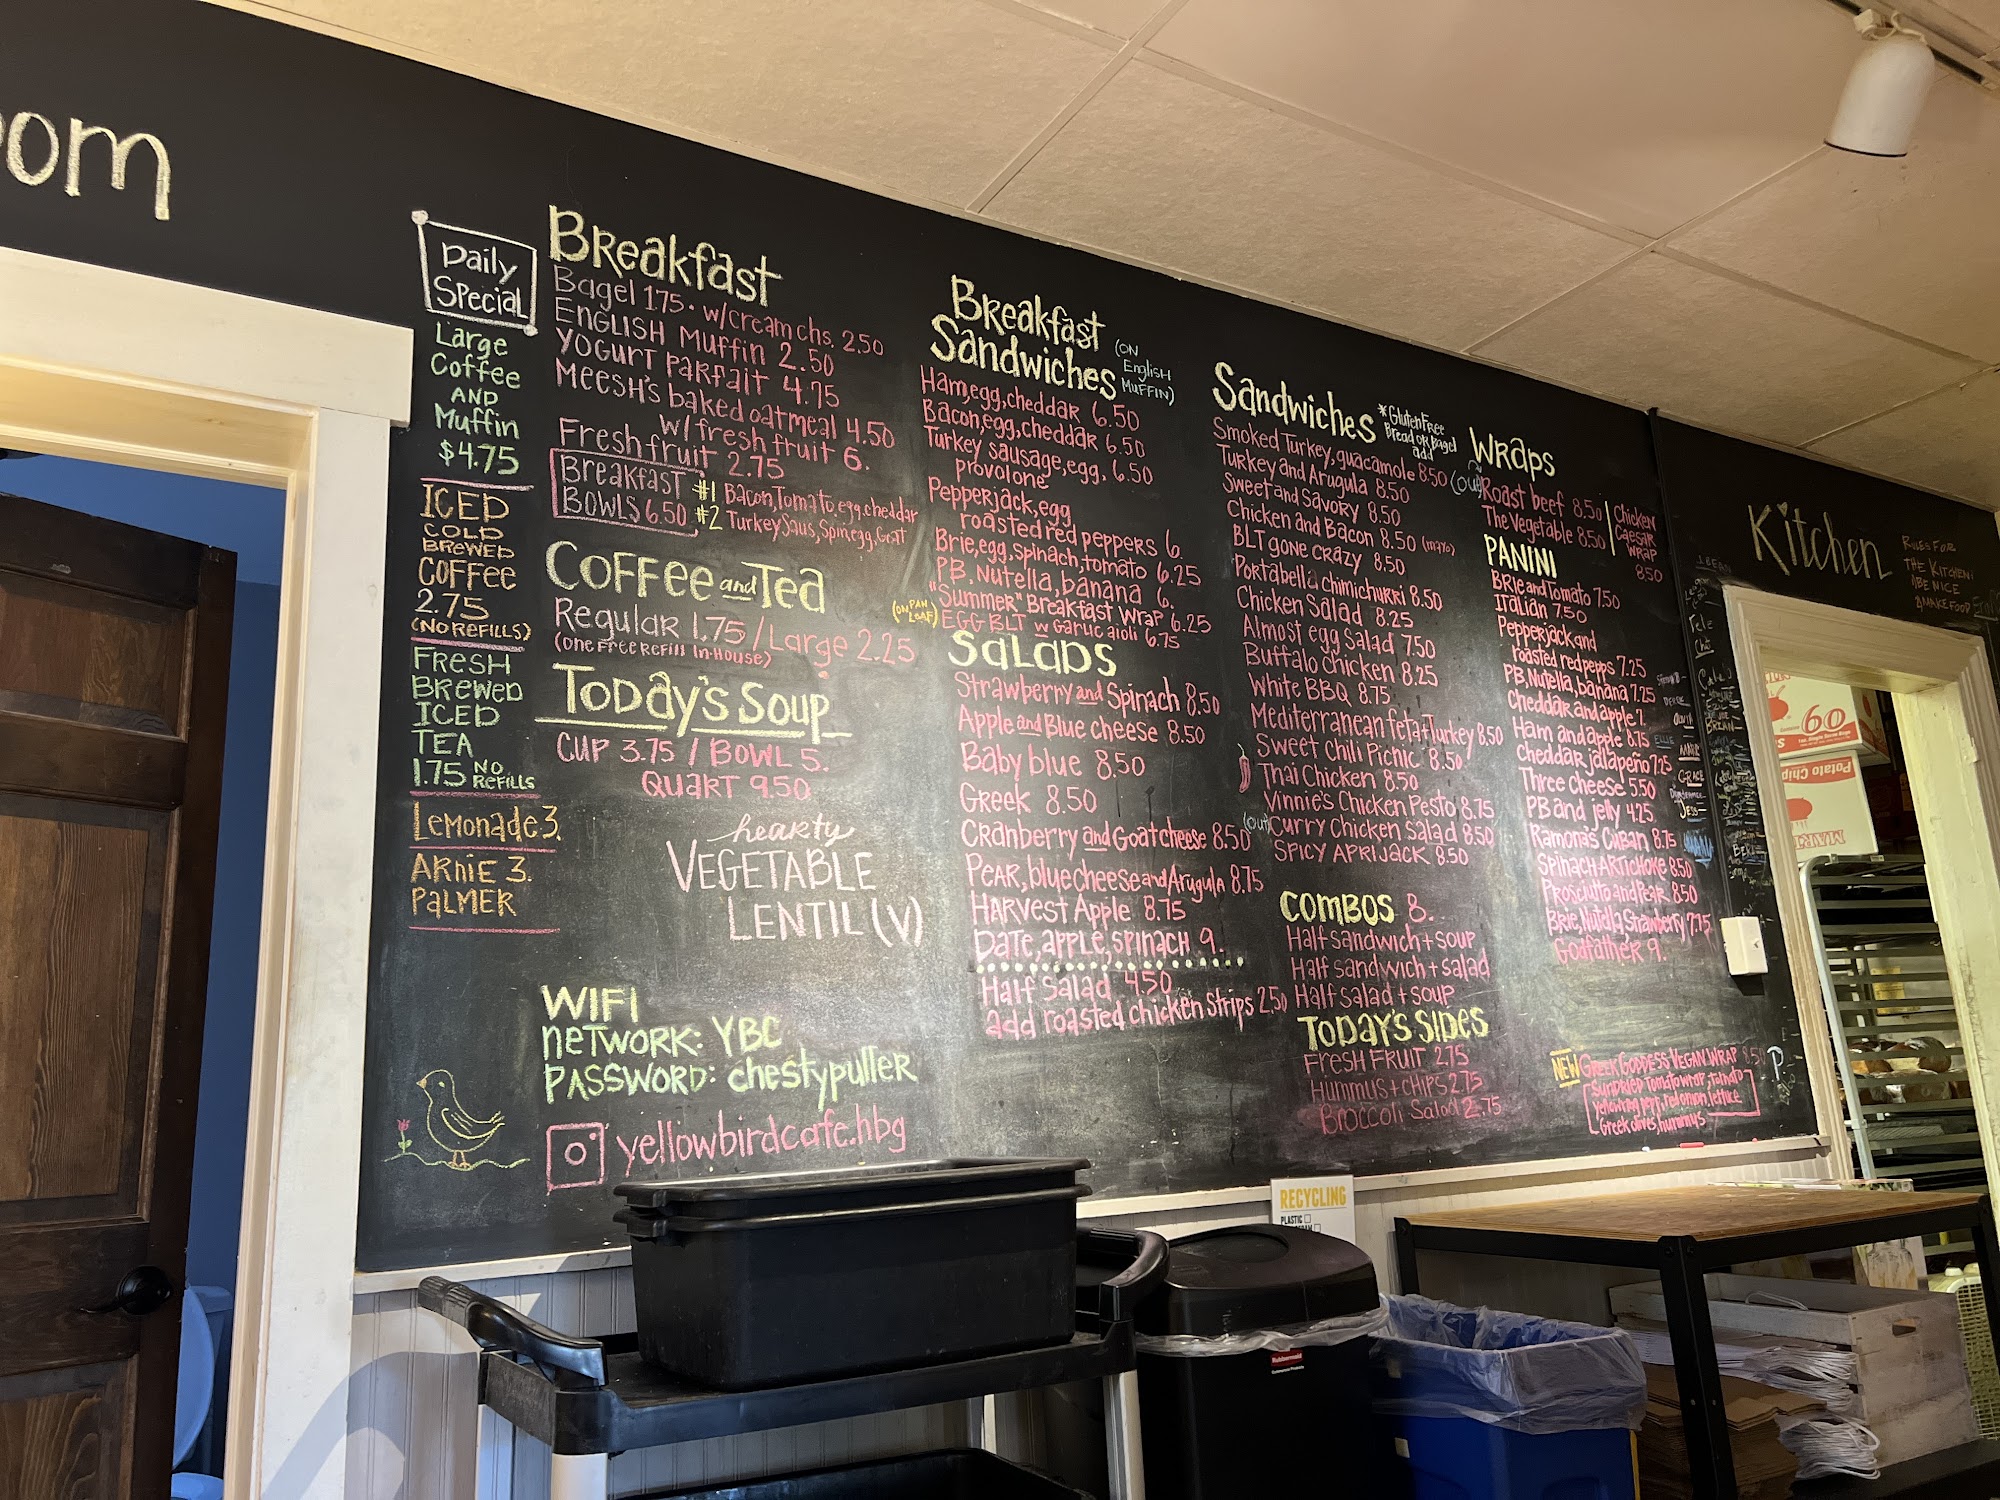 oom
Daily
Special
Large
Coffee
AND
Muffin
$4.75
ICED
COLD
BREWED
COFFEE
2.75
(NO REFILLS)
FRESH
BREWED
ICED
TEA
1.75 NO
REFILLS
Lemonade 3.
ARNIE 3.
PALMER
Breakfast
Bagel 1.75 • w/cream chs. 2.50
ENGLISH MUFFIN 2.50
YOGURT PARFAIT 4.75
MEESH'S baked oatmeal 4.50
w/ fresh fruit 6.
Fresh fruit 2.75
Breakfast
BOWLS 6.50
#1 Bacon, Tomato, egg, cheddar
#2 Turkey Saus, Spin, egg, Goat
COFFEE and TEA
Regular 1.75 / Large 2.25
(one FREE REFILL IN-HOUSE)
TODAY'S SOUP
CUP 3.75 / BOWL 5.
QUART 9.50
hearty
VEGETABLE
LENTIL (V)
WIFI
NETWORK: YBC
PASSWORD: chestypuller
yellowbirdcafe.hbg
Breakfast
Sandwiches
(ON
English
MUFFIN)
Ham, egg, cheddar 6.50
Bacon, egg, cheddar 6.50
Turkey sausage, egg, 6.50
provolone
Pepperjack, egg
roasted red peppers 6.
Brie, egg, spinach, tomato 6.25
PB, Nutella, banana 6.
"Summer" Breakfast Wrap 6.25
(ON PAN
LOAF)
EGG BLT w GARLIC aioli 6.75
SALADS
Strawberry and Spinach 8.50
Apple and Blue cheese 8.50
Baby blue 8.50
Greek 8.50
Cranberry and Goat cheese 8.50
PEAR, blue cheese and Arugula 8.75
HARVEST Apple 8.75
DATE, apple, spinach 9.
Half Salad 4.50
add roasted chicken strips 2.50
Sandwiches
*Gluten Free
Bread or Bagel
add
Smoked Turkey, guacamole 8.50
Turkey and Arugula 8.50
Sweet and Savory 8.50
Chicken and Bacon 8.50 (mayo)
BLT gone crazy 8.50
Portabella chimichurri 8.50
Chicken Salad 8.25
Almost egg salad 7.50
Buffalo Chicken 8.25
White BBQ 8.75
Mediterranean feta + Turkey 8.50
Sweet Chili Picnic 8.50
Thai Chicken 8.50
Vinnie's Chicken Pesto 8.75
(out) Curry Chicken Salad 8.50
SPICY APRIJACK 8.50
COMBOS 8.
Half sandwich + soup
Half sandwich + salad
Half salad + soup
TODAY'S SIDES
FRESH FRUIT 2.75
Hummus + chips 2.75
Broccoli Salad 2.75
WRaps
(out) Roast beef 8.50
The Vegetable 8.50
Chicken
Caesar
WRAP
8.50
PANINI
BRIE and Tomato 7.50
Italian 7.50
Pepperjack and
roasted red pepps 7.25
PB, Nutella, banana 7.25
Cheddar and apple 7.
Ham and apple 8.75
Cheddar jalapeño 7.25
Three cheese 5.50
PB and jelly 4.25
Ramona's Cuban 8.75
SPINACH ARTICHOKE 8.50
Prosciutto and PEAR 8.50
Brie, Nutella, Strawberry 7.75
Godfather 9.
NEW
GREEK GODDESS VEGAN WRAP 8.50
Sundried tomato wrap, tomato
yellow reg pepp, red onion, lettuce
Greek olives, hummus
Kitchen
RULES FOR
THE KITCHEN:
BE NICE
MAKE FOOD
GRACE
JESS
60
Potato Chips
RECYCLING
PLASTIC
Rubbermaid